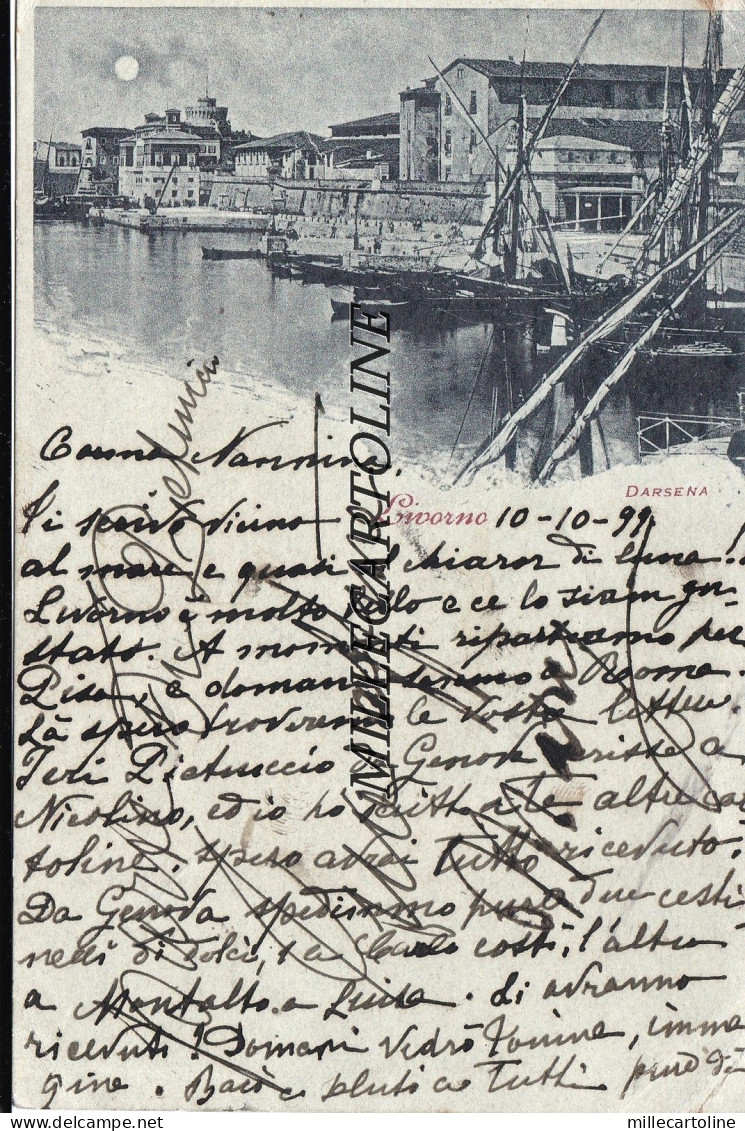 DARSENA
Livorno 10-10-99
Nannina,
Ti scrivo vicino
al mare e quasi al chiaror di luna!
Livorno è molto bello e ce lo siam gu-
stato. A momenti ripartiamo per
Pisa, e domani saremo a Roma.
Là spero troveremo le vostre lettere.
Ieri Pietruccio da Genova scrisse a
Nicolino, ed io ho scritto a te altre car
toline. Spero avrai tutto ricevuto.
Da Genova spedimmo pure due cesti
nelli di dolci, 1 a Carlo costì, l'altro
a Montalto a Luisa. Li avranno
ricevuti! Domani vedrò Tonino, imma
gine. Baci e saluti a tutti
MILLECARTOLINE
millecartoline